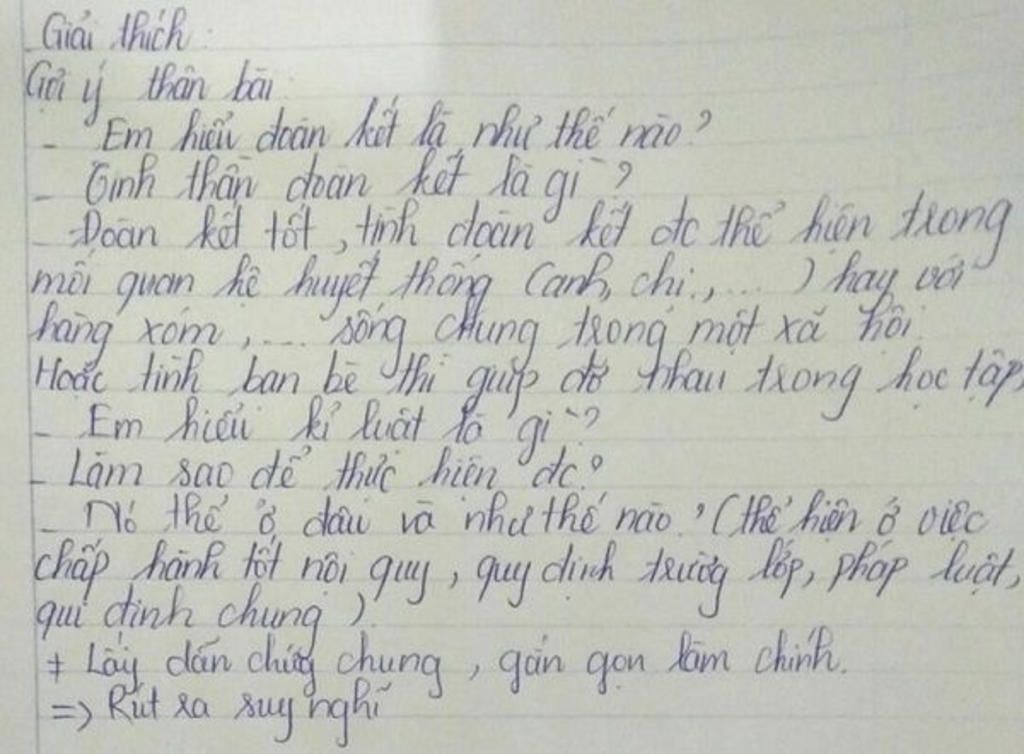 Giải thích:
Gợi ý thân bài
- Em hiểu đoàn kết là như thế nào?
- Tinh thần đoàn kết là gì?
- Đoàn kết tốt, tình đoàn kết đc thể hiện trong
mối quan hệ huyết thống (anh, chị,, ... ) hay với
hàng xóm, ... sống chung trong một xã hội.
Hoặc tình bạn bè thì giúp đỡ nhau trong học tập,
- Em hiểu kỉ luật là gì?
- Làm sao để thực hiện đc?
- Nó thể ở đâu và như thế nào? (thể hiện ở việc
chấp hành tốt nội quy, quy định trường lớp, pháp luật,
qui định chung)
+ Lấy dẫn chứng chung, gắn gọn làm chính.
=> Rút ra suy nghĩ